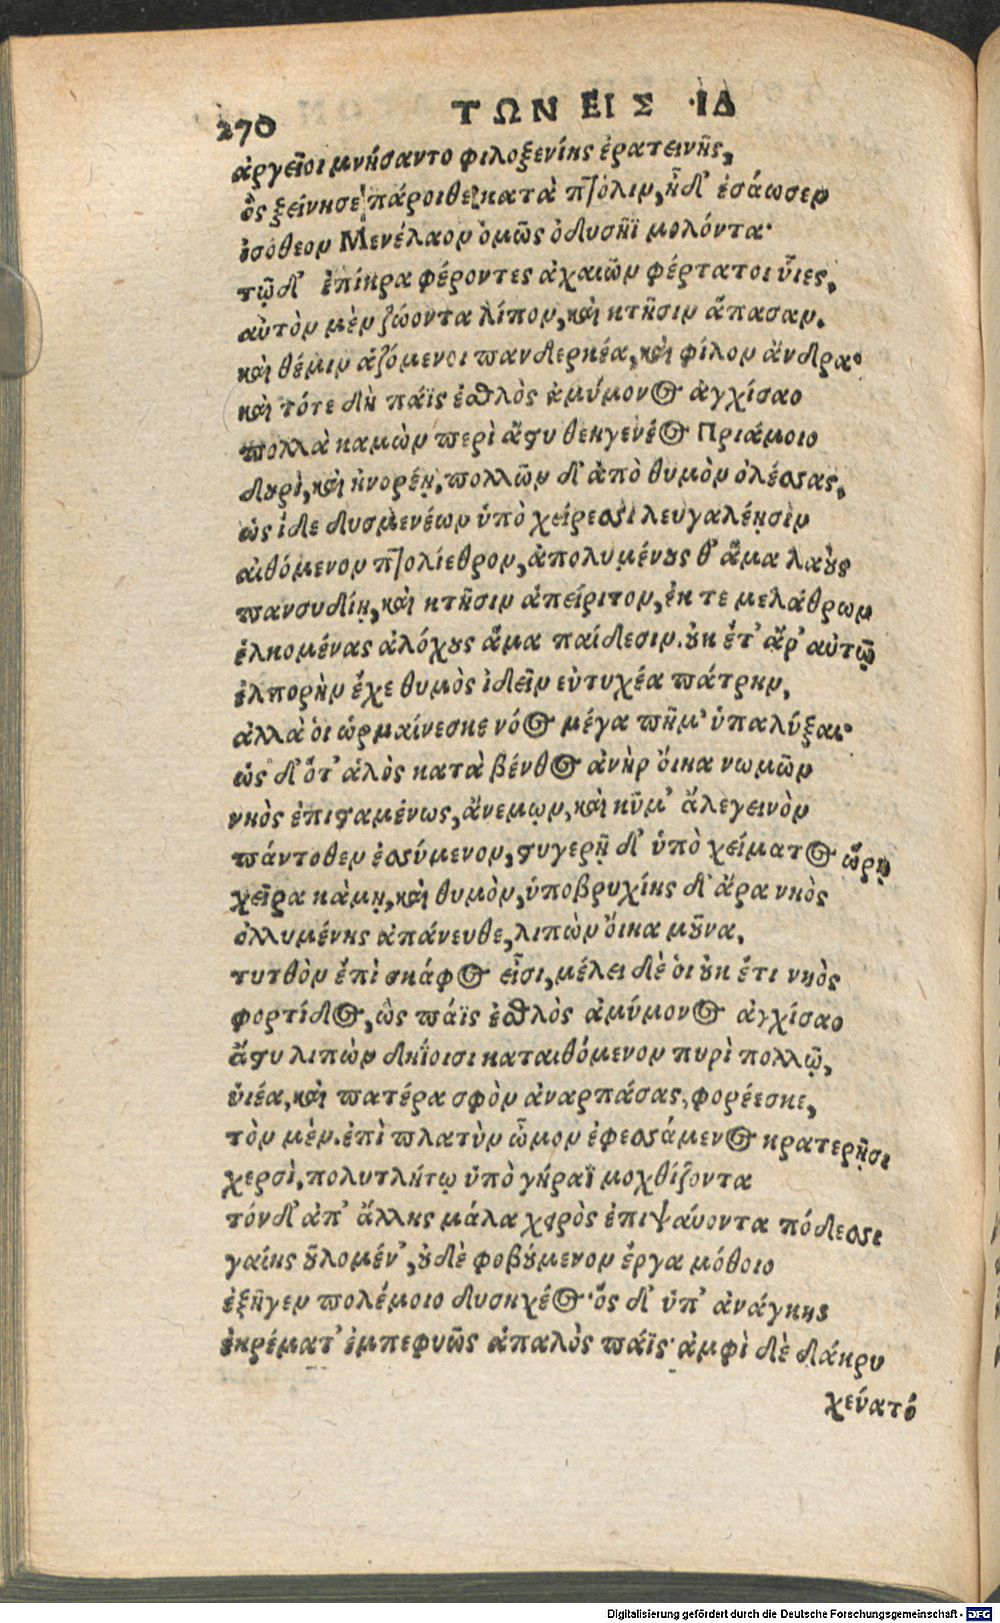 270 ΤΩΝ ΕΙΣ ἸΔ
ἀργεῖοι μνήσαντο φιλοξενίης ἐρατεινῆς,
ὃς ξείνησε πάροιθε κατὰ πτόλιν, ἠδ' ἐσάωσεν
ἰσόθεον Μενέλαον ὁμῶς ὀδυσῆϊ μολόντα·
τῷ δ' ἐπίηρα φέροντες ἀχαιῶν φέρτατοι ὗιες,
αὐτὸν μὲν ζώοντα λίπον, καὶ κτῆσιν ἅπασαν.
καὶ θέμιν ἁζόμενοι πανδερκέα, καὶ φίλον ἄνδρα·
καὶ τότε δὴ πάϊς ἐσθλὸς ἀμύμονος ἀγχίσαο
πολλὰ καμὼν περὶ ἄστυ θεηγενέος Πριάμοιο
δουρὶ, καὶ ἠνορέῃ, πολλῶν δ' ἀπὸ θυμὸν ὀλέσσας,
ὡς ἴδε δυσμενέων ὑπὸ χείρεσσι λευγαλέῃσὶν
αἰθόμενον πτολίεθρον, ἀπολυμένους θ' ἅμα λαοὺς
πανσυδίῃ, καὶ κτῆσιν ἀπείριτον, ἐκ τε μελάθρων
ἑλκομένας ἀλόχους ἅμα παίδεσιν. οὐκ ἔτ' ἄρ' αὐτῷ
ἐλπορὴν ἔχε θυμὸς ἰδεῖν εὐτυχέα πάτρην,
ἀλλὰ οἱ ὡρμαίνεσκε νόος μέγα πῆμ' ὑπαλύξαι·
ὡς δ' ὅτ' ἁλὸς κατὰ βένθος ἀνὴρ ὄικα νωμῶν
νηὸς ἐπισταμένως, ἄνεμῳν, καὶ κῦμ' ἄλεγεινὸν
πάντοθεν ἐσσύμενον, στυγερῇ δ' ὑπὸ χείματος ὥρῃ
χεῖρα κάμῃ, καὶ θυμὸν, ὑποβρυχίης δ' ἄρα νηὸς
ὀλλυμένης ἀπάνευθε, λιπὼν ὄικα μοῦνα,
τυτθὸν ἐπὶ σκάφος εἶσι, μέλει δὲ οἱ οὐκ ἔτι νηὸς
φορτίδος, ὣς πάϊς ἐσθλὸς ἀμύμονος ἀγχίσαο
ἄστυ λιπὼν δηΐοισι καταιθόμενον πυρὶ πολλῷ,
ὑιέα, καὶ πατέρα σφὸν ἀναρπάσας, φορέεσκε,
τὸν μὲν. ἐπὶ πλατὺν ὦμον ἐφεσσάμενος κρατερῇσι
χερσὶ, πολυτλήτῳ ὑπὸ γήραϊ μοχθίζοντα
τόν δ' ἀπ' ἄλλης μάλα χειρὸς ἐπιψάυοντα πόδεσσι
γαίης οὖλομέν', οὐδὲ φοβούμενον ἔργα μόθοιο
ἐξῆγεν πολέμοιο δυσηχέος· ὃς δ' ὑπ' ἀνάγκης
ἐκρέματ' ἐμπεφυῶς ἁπαλὸς πάϊς· ἀμφὶ δὲ δάκρυ
χεύατό
Digitalisierung gefördert durch die Deutsche Forschungsgemeinschaft - DFG